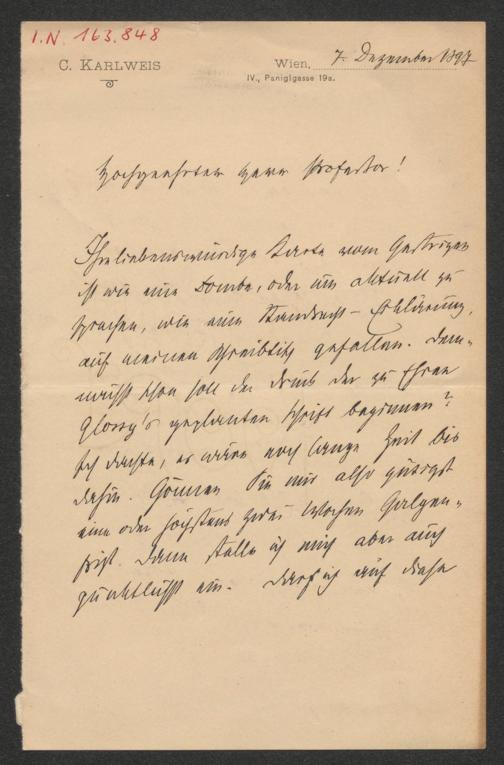 I.N. 163.848
C. KARLWEIS
Wien, 7. Dezember 1897
IV., Paniglgasse 19a.
Hochgeehrter Herr Professor!
Ihre liebenswürdige Karte vom Gestrigen
ist wie eine Bombe, oder um aktuell zu
sprechen, wie eine Standrecht-Erklärung,
auf meinen Schreibtisch gefallen. Dem-
nächst schon soll der Druck der zu Ehren
Glossy's geplanten Schrift beginnen?
Ich dachte, es wäre noch lange Zeit bis
dahin. Gönnen Sie mir also gütigst
eine oder höchstens zwei Wochen Galgen-
frist. Dann stelle ich mich aber auch
pünktlichst ein. Darf ich auf diese